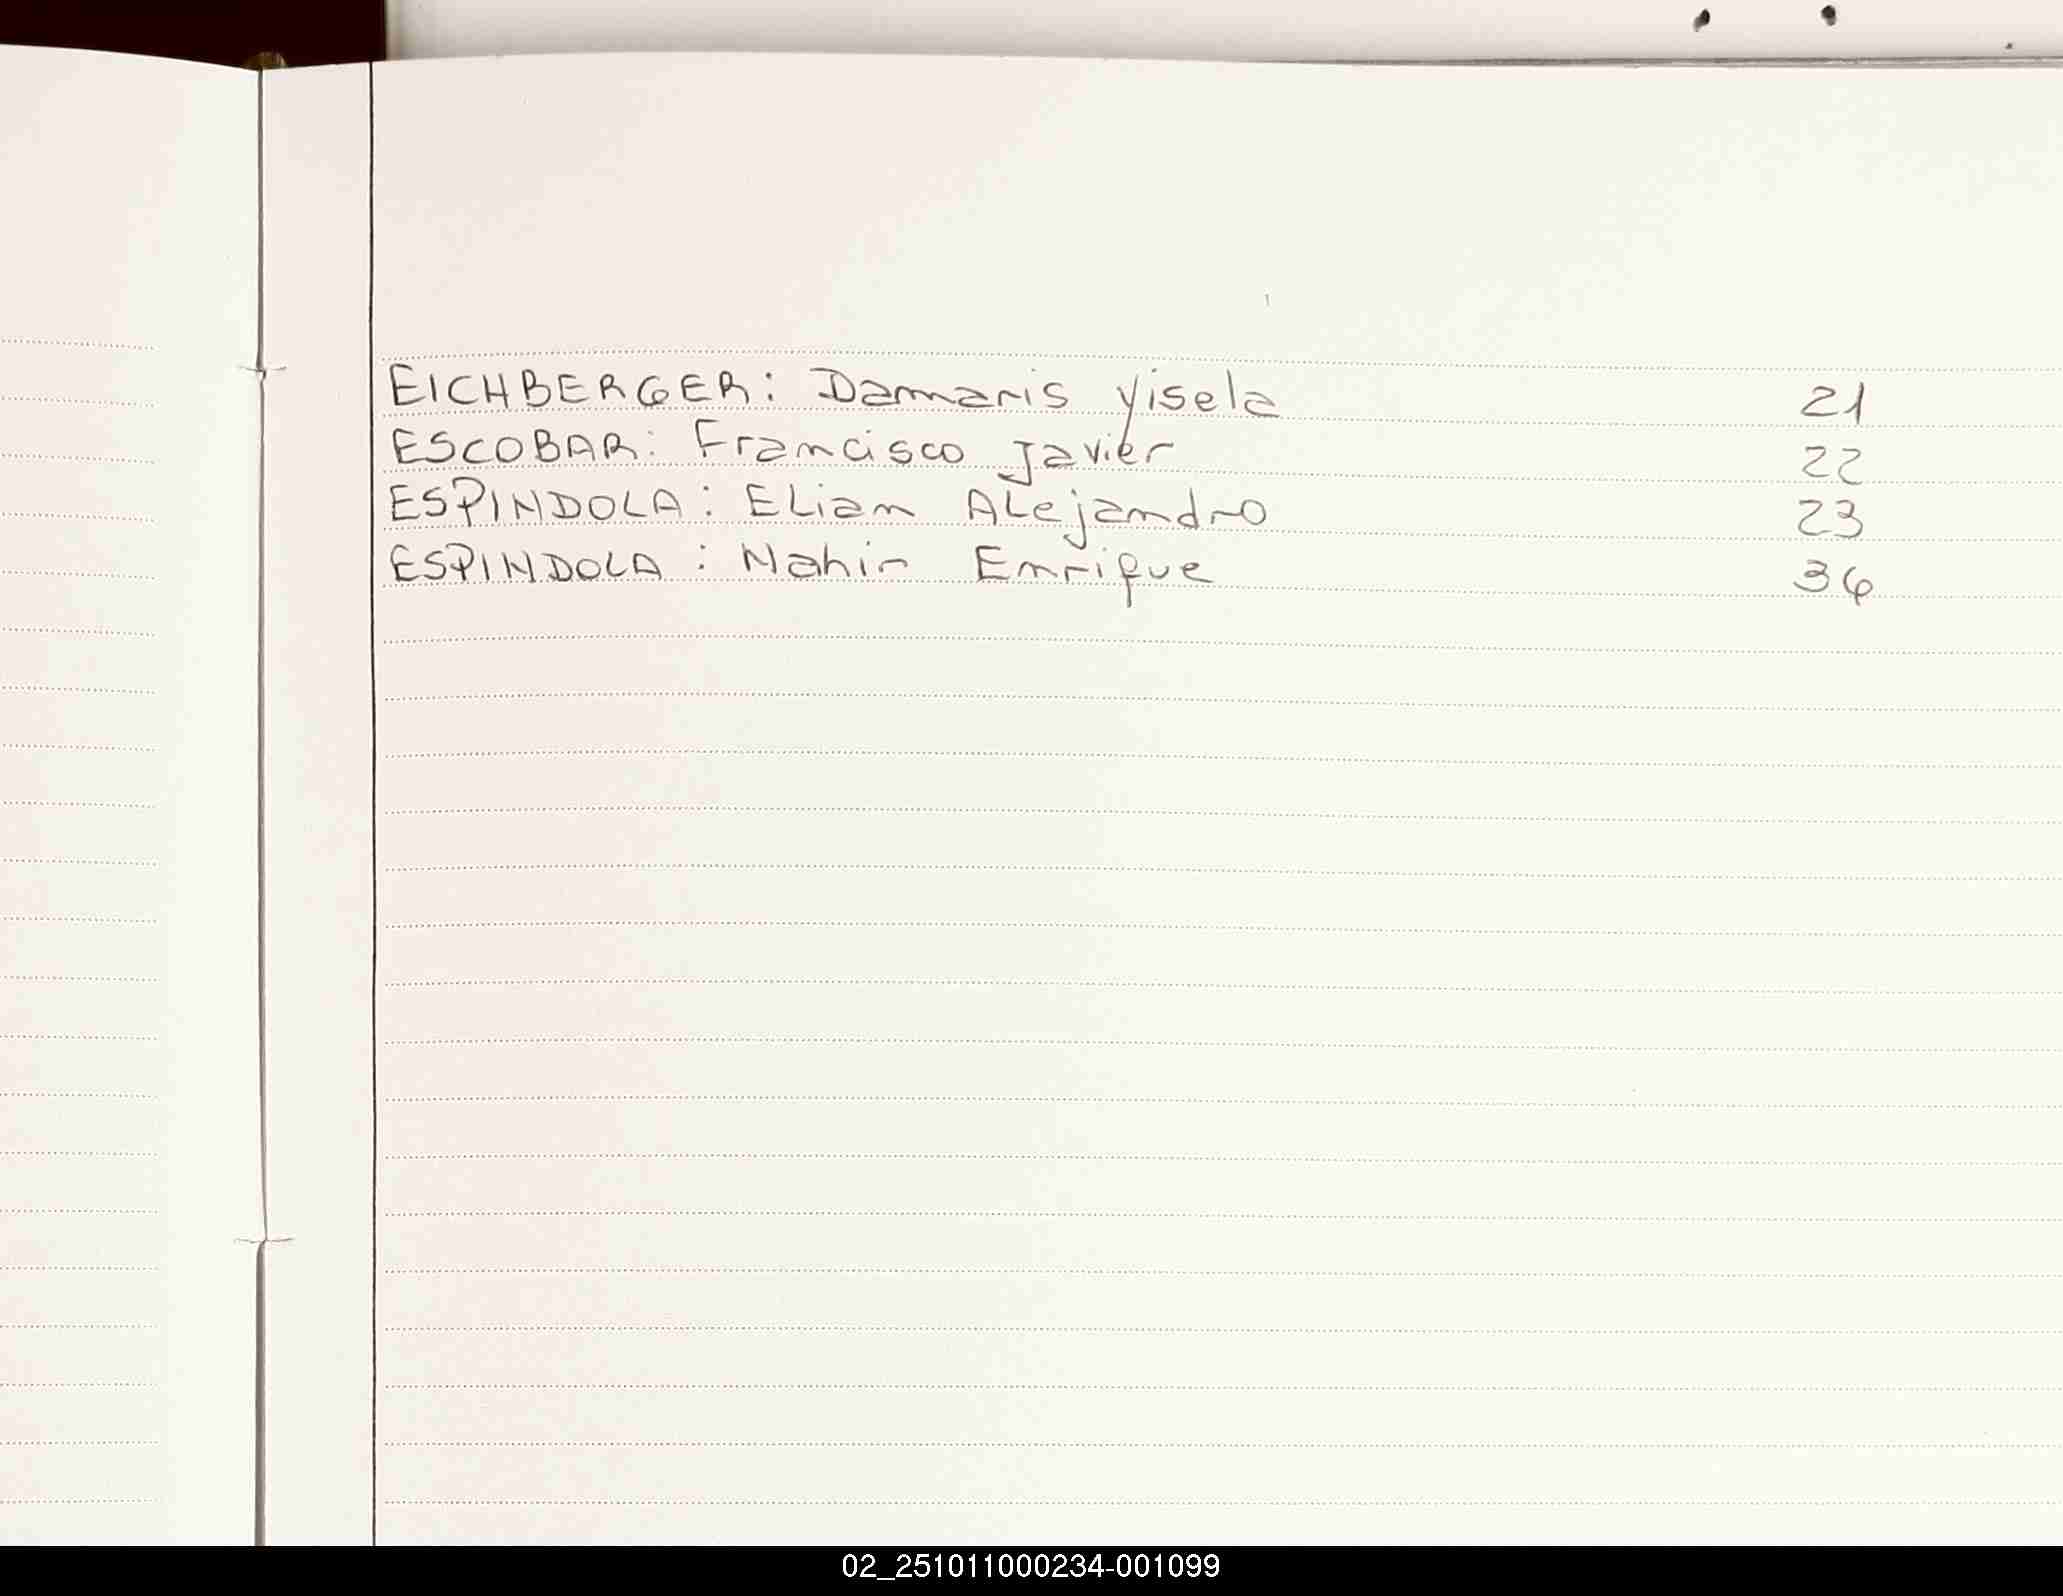 EICHBERGER: Damaris Yisela 21
ESCOBAR: Francisco Javier 22
ESPINDOLA: ELian ALejandro 23
ESPINDOLA: Nahir Enrique 36
02_251011000234-001099